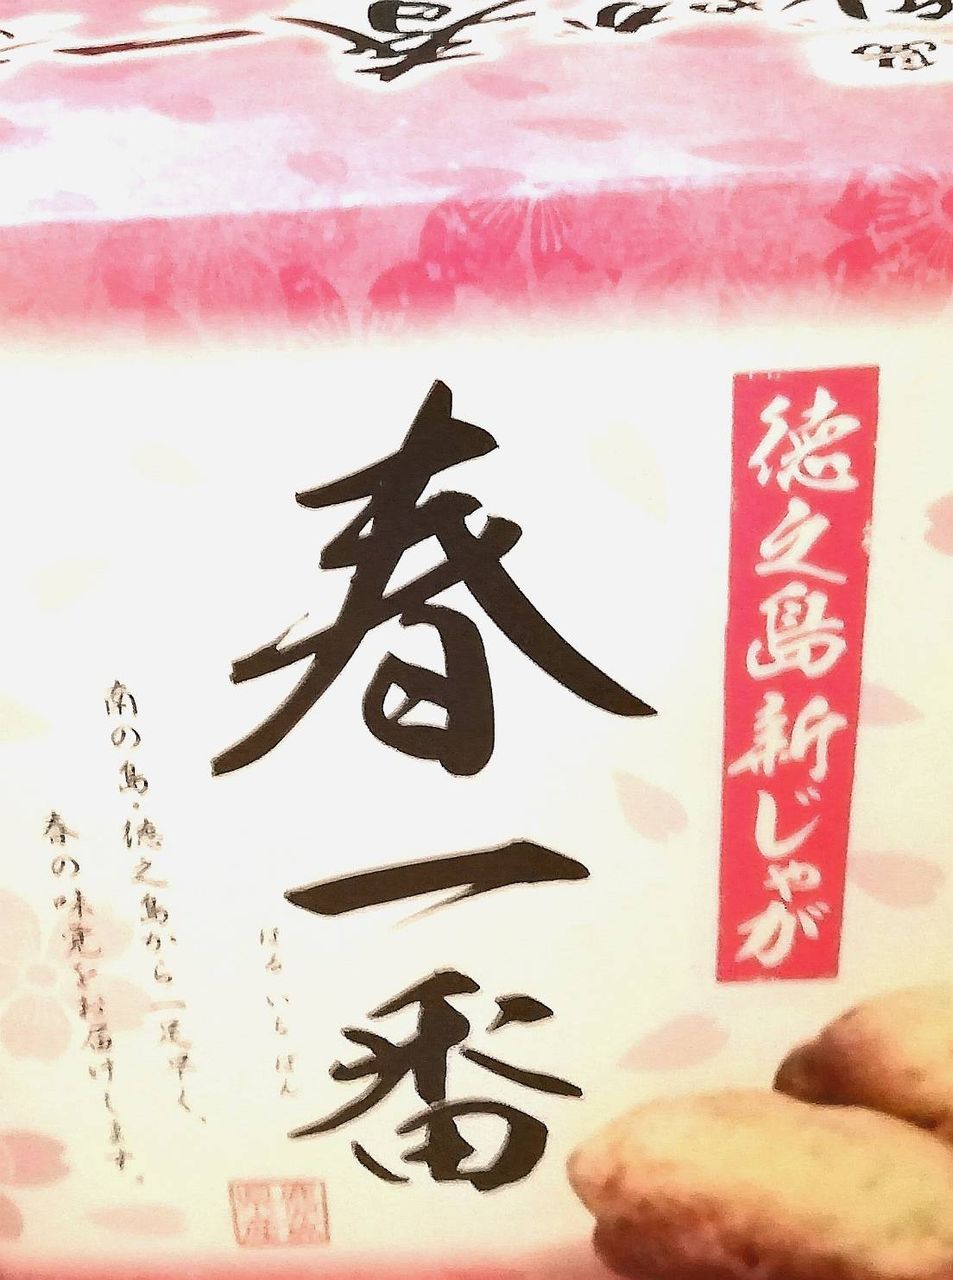 徳之島新じゃが
春一番
はるいちばん
南の島・徳之島から一足早く、
春の味覚をお届けします。